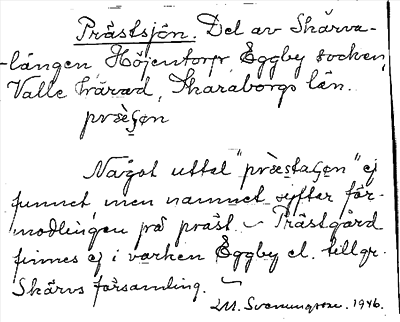 Prästsjön. Del av Skärva-
-lången Höjentorp Eggby socken,
Valle härad, Skaraborgs län.
Något uttal "prèstaʃən" ej
funnet men namnet syftar för-
modlingen på präst. ~ Prästgård
finnes ej i varken Eggby el. tillgr.
Skärvs församling. ~
1946.